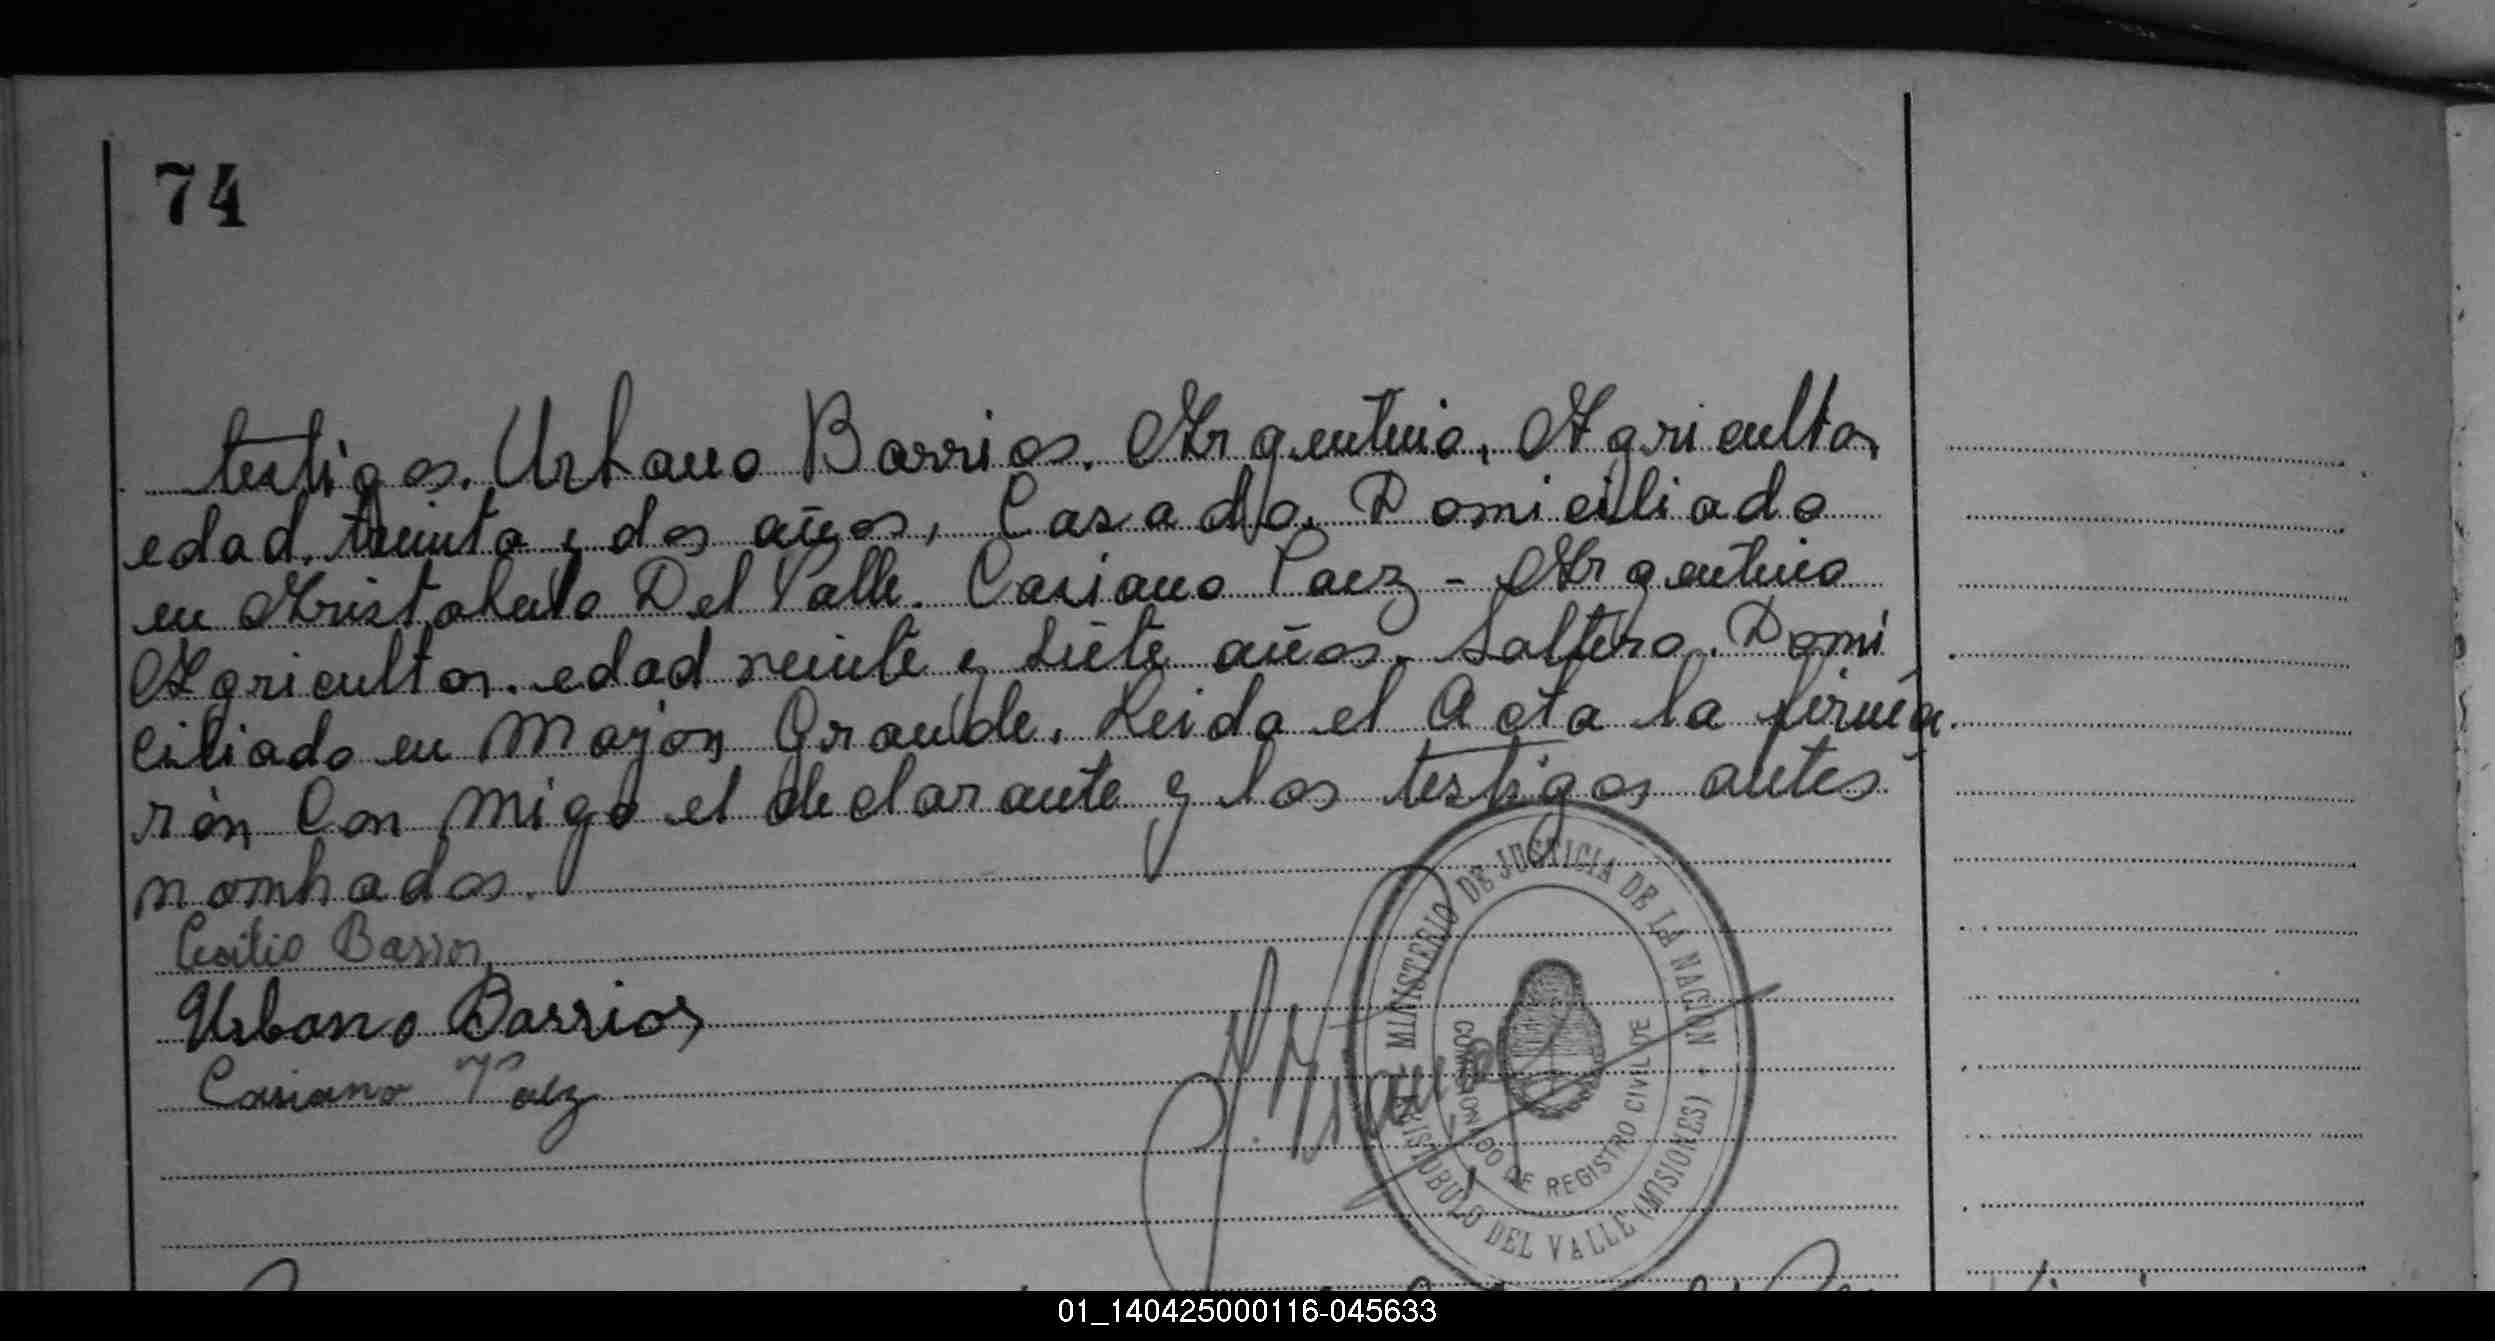 74
testigos. Urbano Barrios. Argentino, Agricultor
edad. treinta y dos años, Casado. Domiciliado
en Aristobulo Del Valle. Casiano Paez - Argentino
Agricultor. edad veinte y siete años. Soltero. Domi
ciliado en Mojon Grande. Leida el Acta la firma
rón Con migo el declarante y los testigos antes
nombados.
Cecilio Barrios
Urbano Barrios
Casiano Paez
MINISTERIO DE JUSTICIA DE LA NACION
COMISIONADO DE REGISTRO CIVIL DE
ARISTOBULO DEL VALLE (MISIONES)
01_140425000116-045633